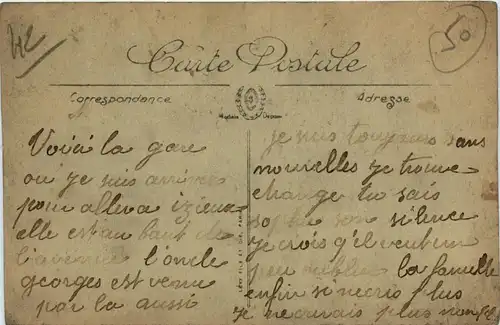 42
50
Carte Postale
Correspondance
Adresse
Voici la gare
ou je suis arrivée
pour aller a izieux
elle est au bout de
l'avenue l'oncle
georges est venu
par la aussi
LEVY FILS ET CIE, PARIS
je suis toujours sans
nouvelles je trouve
change tu sais
son silence
je crois q'il veut un
peu oublier la famille
enfin si n'ecris plus
je n'ecrirais plus non